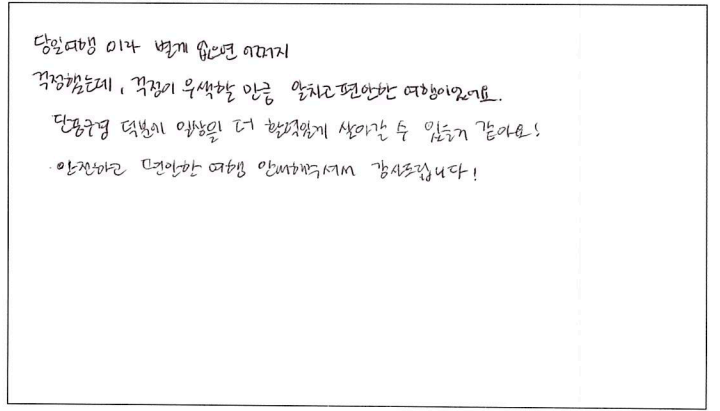 당일여행 이라 별게 없으면 어쩌지
걱정했는데, 걱정이 무색할 만큼 알차고 편안한 여행이었어요.
단풍구경 덕분에 일상을 더 활력있게 살아갈 수 있을거 같아요!
안전하고 편안한 여행 안내해주셔서 감사드립니다!